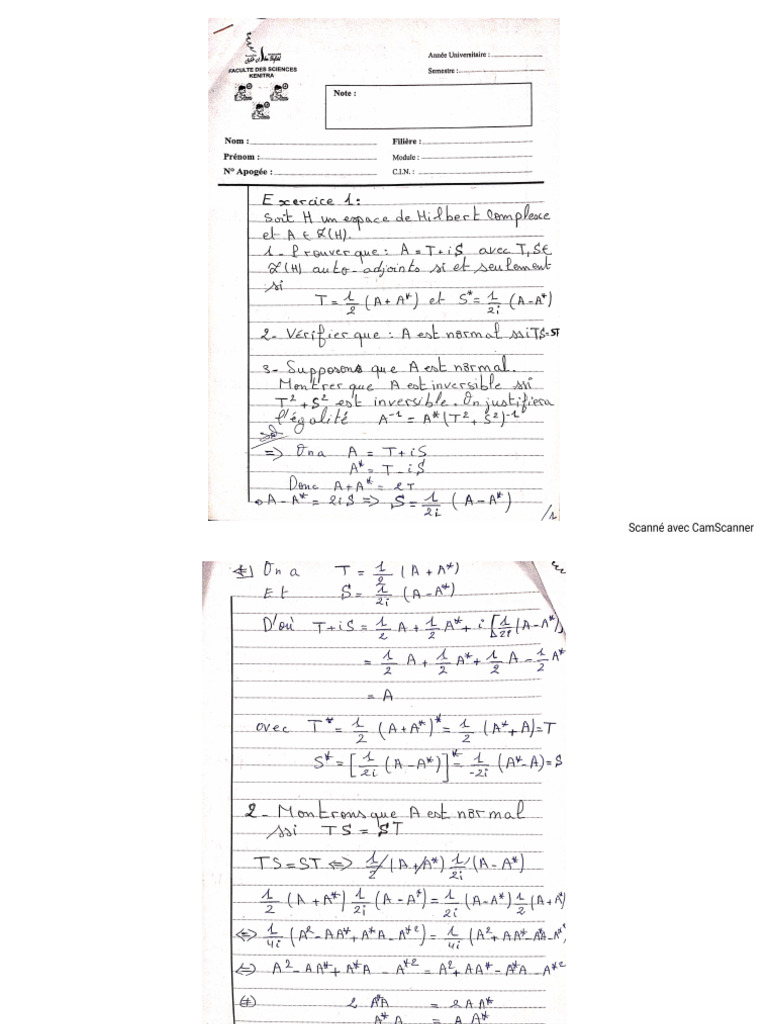 FACULTE DES SCIENCES
KENITRA
Année Universitaire :
Semestre :
Note :
Nom :
Filière :
Prénom :
Module :
N° Apogée :
C.I.N. :
Exercice 1 :
Soit H un espace de Hilbert Complexe
et A ∈ ℒ(H).
1 - Prouver que : A = T + iS avec T, S ∈
ℒ(H) auto-adjoints si et seulement
si
T = 1/2 (A + A*) et S* = 1/2i (A - A*)
2 - Vérifier que : A est normal ssi TS = ST
3 - Supposons que A est normal.
Montrer que A est inversible ssi
T² + S² est inversible. On justifiera
l'égalité A⁻¹ = A*(T² + S²)⁻¹
=> On a A = T + iS
A* = T - iS
Donc A + A* = 2T
• A - A* = 2iS => S = 1/2i (A - A*)
/1
Scanné avec CamScanner
<=] On a T = 1/2 (A + A*)
Et S = 1/2i (A - A*)
D'où T + iS = 1/2 A + 1/2 A* + i [1/2i (A - A*)]
= 1/2 A + 1/2 A* + 1/2 A - 1/2 A*
= A
avec T* = 1/2 (A + A*)* = 1/2 (A* + A) = T
S* = [1/2i (A - A*)]* = 1/-2i (A* - A) = S
2 - Montrons que A est normal
ssi TS = ST
TS = ST <=> 1/2 (A + A*) 1/2i (A - A*)
1/2 (A + A*) 1/2i (A - A*) = 1/2i (A - A*) 1/2 (A + A*)
<=> 1/4i (A² - AA* + A*A - A*²) = 1/4i (A² + AA* - A*A - A*²)
<=> A² - AA* + A*A - A*² = A² + AA* - A*A - A*²
<=> 2 A*A = 2 AA*
A*A = AA*